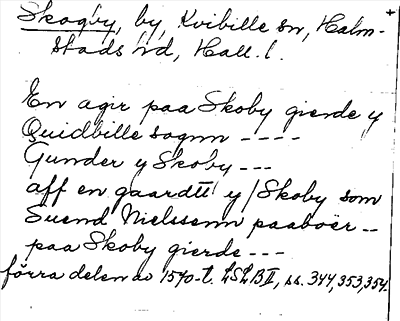 Skogby, by, Kvibille sn, Halm-
stads hd, Hall. l.
En agir paa Skoby gierde y
Quidbille sognn ----
Gunder y Skoby ---
aff en gaardtt y / Skoby som
Suend Nielssenn paaboer --
paa Skoby gierde ---
förra delen av 1570-t. LSLB II, ss. 344, 353, 354.